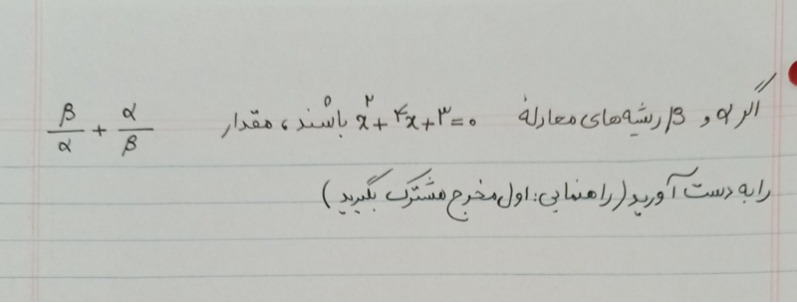 اگر α و β ریشه‌های معادلهٔ x² + ۴x + ۳ = ۰ باشند، مقدار β/α + α/β
را به دست آورید (راهنمایی: اول مخرج مشترک بگیرید)